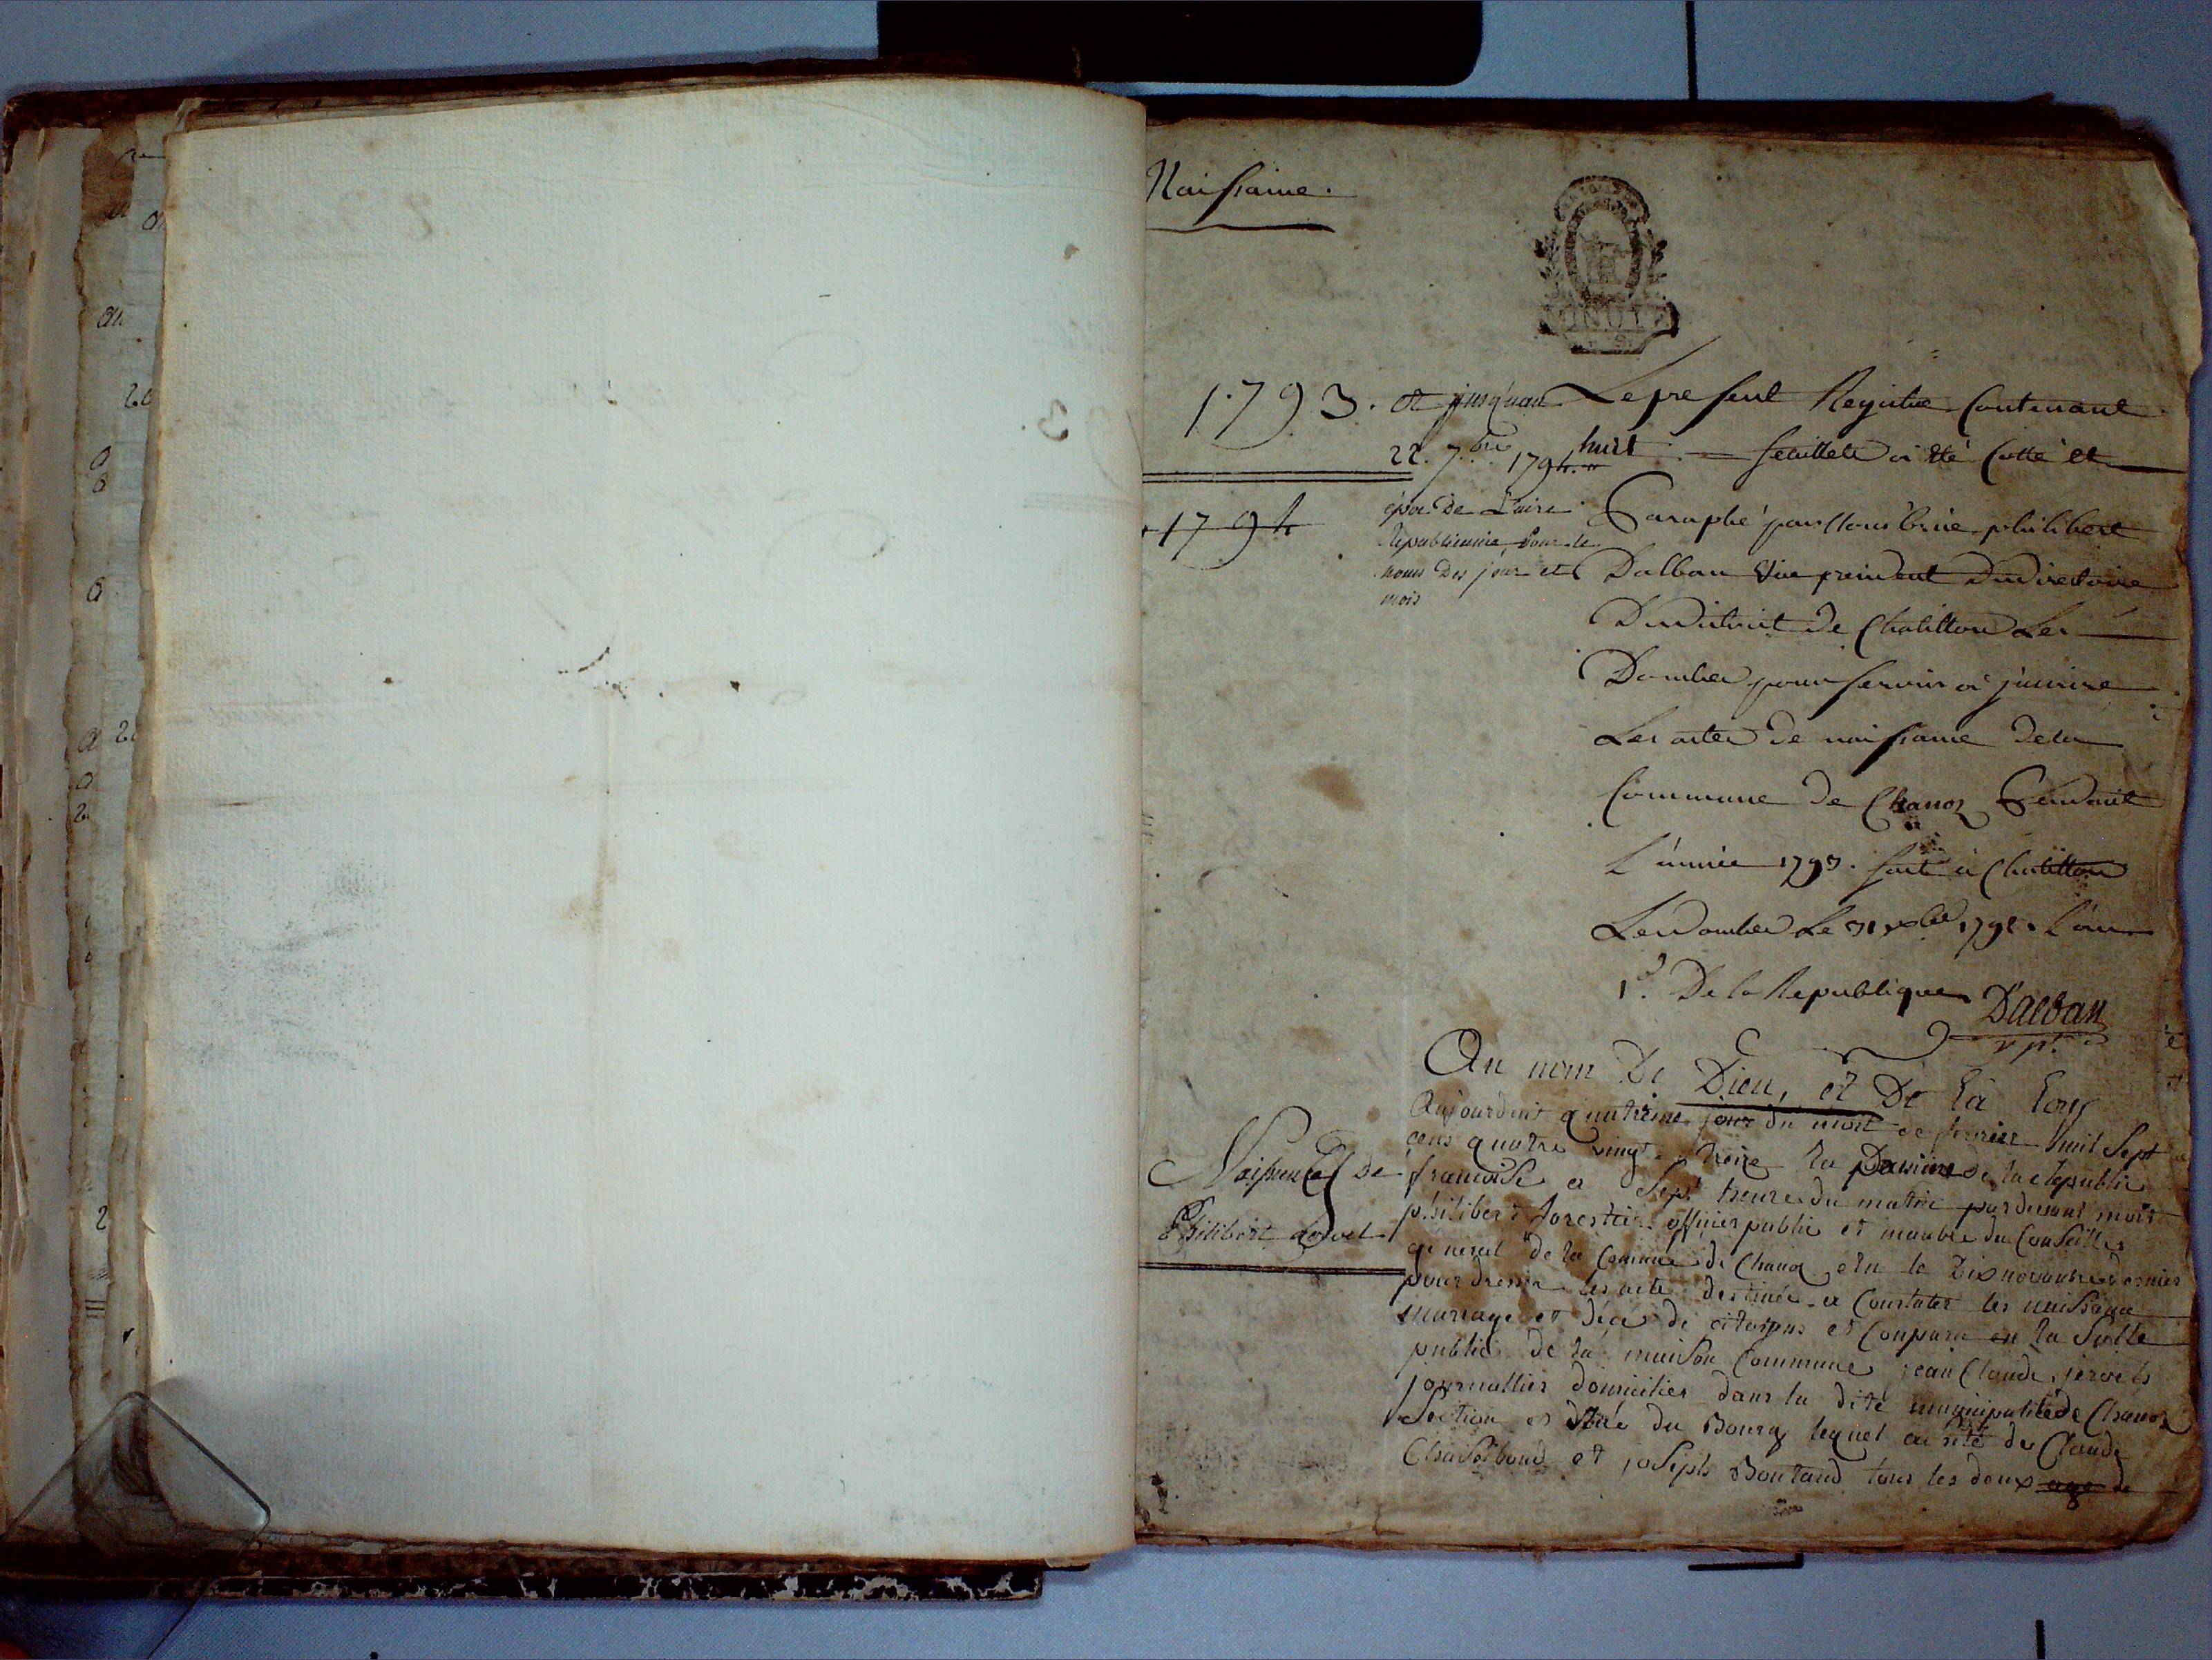 Naissance.
1793. et jusqu'au
22. 7.bre 1794.
époc. De L'aire
Républicaine, pour le
noms Des jour et
mois
1794
Le présent Registre Contenant
huit feuillets a été Cotté et
Paraphé par Nous Philibert
Dalban Vice président Du Directoire
Du District de Chatillon Les
Dombes pour servir à inscrire
Les actes de naissance de la
Commune de Chanoz Pendant
L'année 1793. fait à Chatillon
Les Dombes Le 31 xbre 1792. L'an
1er. De la Republique
D'alban
v. pt.
Au nom De Dieu, et De la Loy
Naissance de
Philibert
Aujourduit quatrieme jour du mois de fevrier mil Sept
cens quatre vingt treize la de la Republic
francoise a Sept heure du matin par devant moit
philibert forestier officier public et manbre du Conseille
general de la Comune de Chanoz elu le Dix novanbre dernier
pour dresser les acte destinée a Constater les naissance
mariage et décé de citoyens et Conparu en la Salle
public de la maison Commune jean Claude
journallier domicilier dans la dite municipalité de Chanoz
Section du Bourg lequel de Claude
et joseph Boutaud tous les deux age de